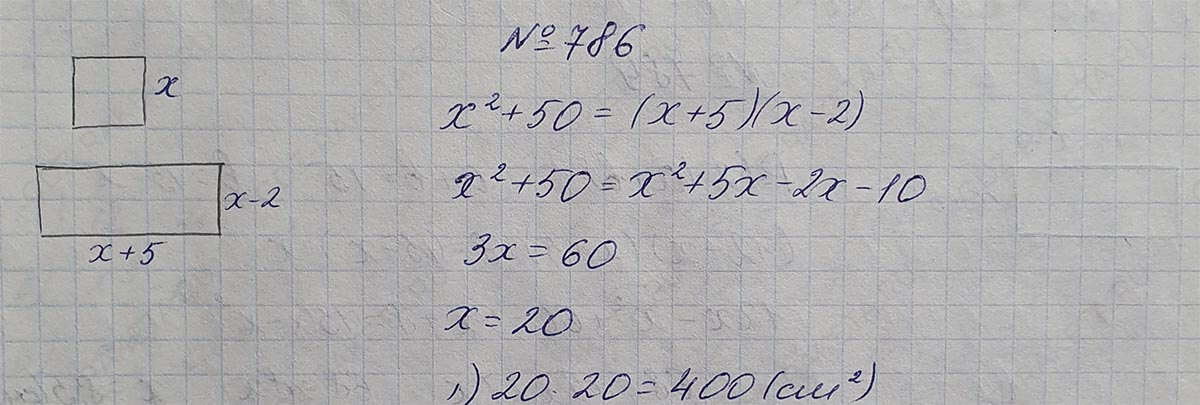 № 786
x
x² + 50 = (x + 5)(x - 2)
x - 2
x² + 50 = x² + 5x - 2x - 10
x + 5
3x = 60
x = 20
1) 20 · 20 = 400 (см²)